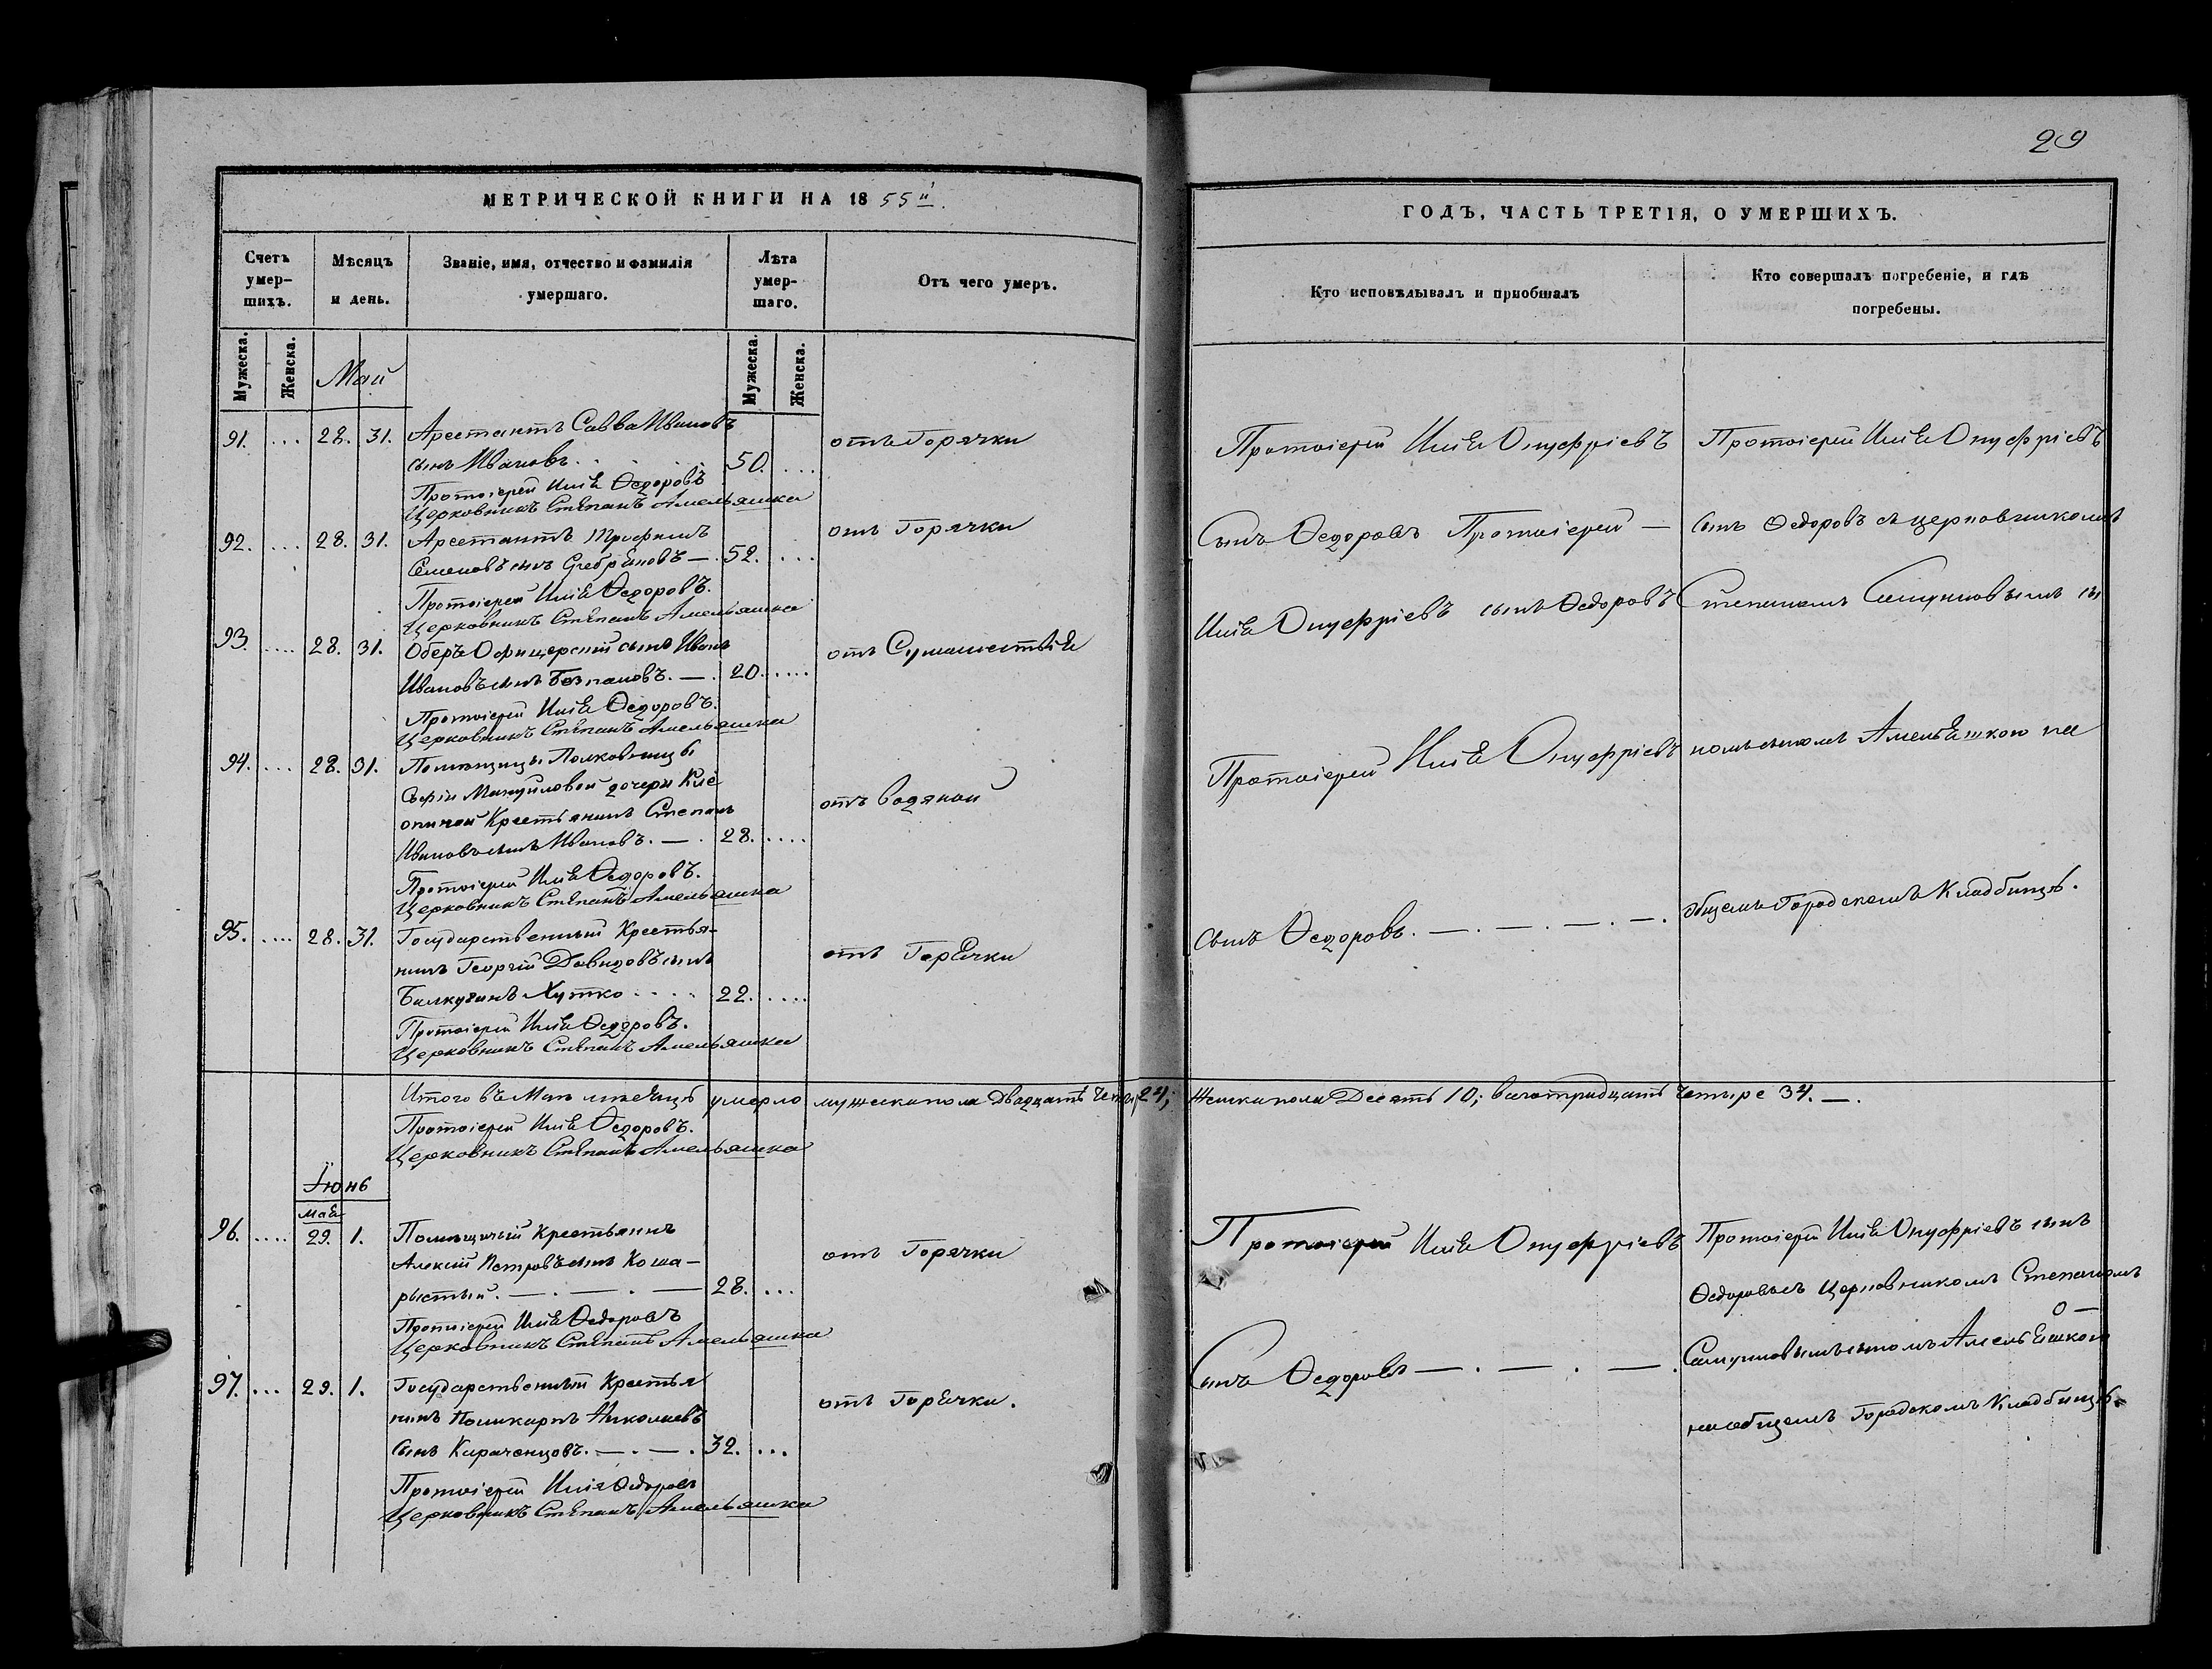 29
МЕТРИЧЕСКОЙ КНИГИ НА 1855й.
ГОДЪ, ЧАСТЬ ТРЕТІЯ, О УМЕРШИХЪ.
Счетъ умер-
шихъ.
Мѣсяцъ
и день.
Званіе, имя, отчество и фамилія
умершаго.
Лѣта
умер-
шаго.
Отъ чего умеръ.
Кто исповѣдывалъ и приобщалъ
Кто совершалъ погребеніе, и гдѣ
погребены.
Мужеска.
Женска.
Май
Мужеска.
Женска.
91. ... 28. 31. Арестантъ Савва Ивановъ
сынъ Ивановъ. 50. ... отъ Горячки
Протоіерей Илія Ѳедоровъ
Церковникъ Степанъ Амельяшка
92. ... 28. 31. Арестантъ Трофимъ
Семеновъ сынъ — 52. ... отъ Горячки
Протоіерей Илія Ѳедоровъ.
Церковникъ Степанъ Амельяшка
93. .... 28. 31. Оберъ Офицерскій сынъ Иванъ
Ивановъ сынъ — . 20. .... отъ Сумашествія
Протоіерей Илія Ѳедоровъ.
Церковникъ Степанъ Амельяшка
94. ... 28. 31. Помѣщицы Полковницы
Софіи Мануиловой дочери
Крестьянинъ Степанъ
Ивановъ сынъ Ивановъ. — . 28. .... отъ водяной
Протоіерей Илія Ѳедоровъ.
Церковникъ Степанъ Амельяшка
95. .... 28. 31. Государственный Крестья-
нинъ Георгій Давидовъ сынъ
Хутко .... 22. .... отъ Горячки
Протоіерей Илія Ѳедоровъ.
Церковникъ Степанъ Амельяшка
Протоіерей Илія Онуфріевъ
Сынъ Ѳедоровъ Протоіерей —
Илія Онуфріевъ сынъ Ѳедоровъ
Протоіерей Илія Онуфріевъ
сынъ Ѳедоровъ. — . — . — . — .
Протоіерей Илія Онуфріевъ
сынъ Ѳедоровъ съ церковникомъ
Степаномъ Самуиловымъ сы
номъ Амельяшкою на
общемъ Городскомъ Кладбищѣ.
Итого въ Маѣ мѣсяцѣ умерло мужеска пола Двадцать 24; Женска пола Десять 10; всего тридцать четыре 34. — .
Протоіерей Илія Ѳедоровъ.
Церковникъ Степанъ Амельяшка
Іюнь
мая
96. .... 29. 1. Помѣщичій Крестьянинъ
Алексій Петровъ сынъ Коша-
рыстый. — . — . — 28. ... отъ Горячки
Протоіерей Илія Ѳедоровъ
Церковникъ Степанъ Амельяшка
97. ... 29. 1. Государственный Крестья
нинъ Поликарпъ Николаевъ
Сынъ Караченцовъ. — . — . 32. ... отъ Горячки.
Протоіерей Илія Ѳедоровъ
Церковникъ Степанъ Амельяшка
Протоіерей Илія Онуфріевъ
Сынъ Ѳедоровъ — . — . — .
Протоіерей Илія Онуфріевъ сынъ
Ѳедоровъ съ Церковникомъ Степаномъ
Самуиловымъ сыномъ Амельяшкою
на общемъ Городскомъ Кладбищѣ.